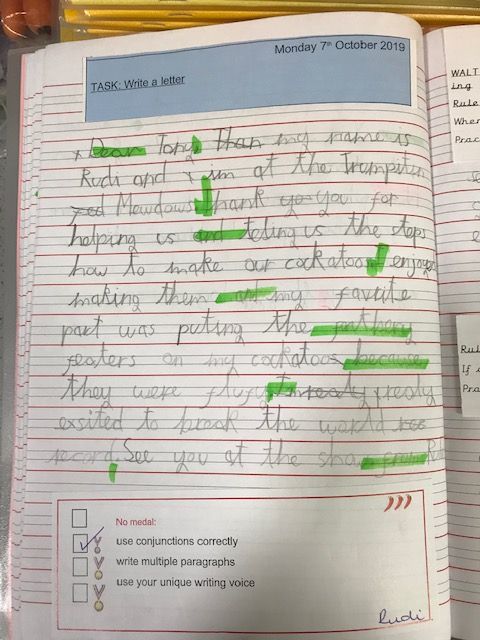 Monday 7th October 2019
TASK: Write a letter
x Dear Tony Than my name is
Rudi and I im at the Trumpitun
Mewdows thank yo you for
helping us and teling us the steps
how to make our cockatoos I enjoyed
making them my favrite
part was puting the
featers on my cockatoos because
they were flufy I realy
exsited to break the warld rec
record. See you at the sho from Rudi
No medal:
use conjunctions correctly
write multiple paragraphs
use your unique writing voice
Rudi
WALT
ing
Rule
When
Prac
Rul
If
Pra